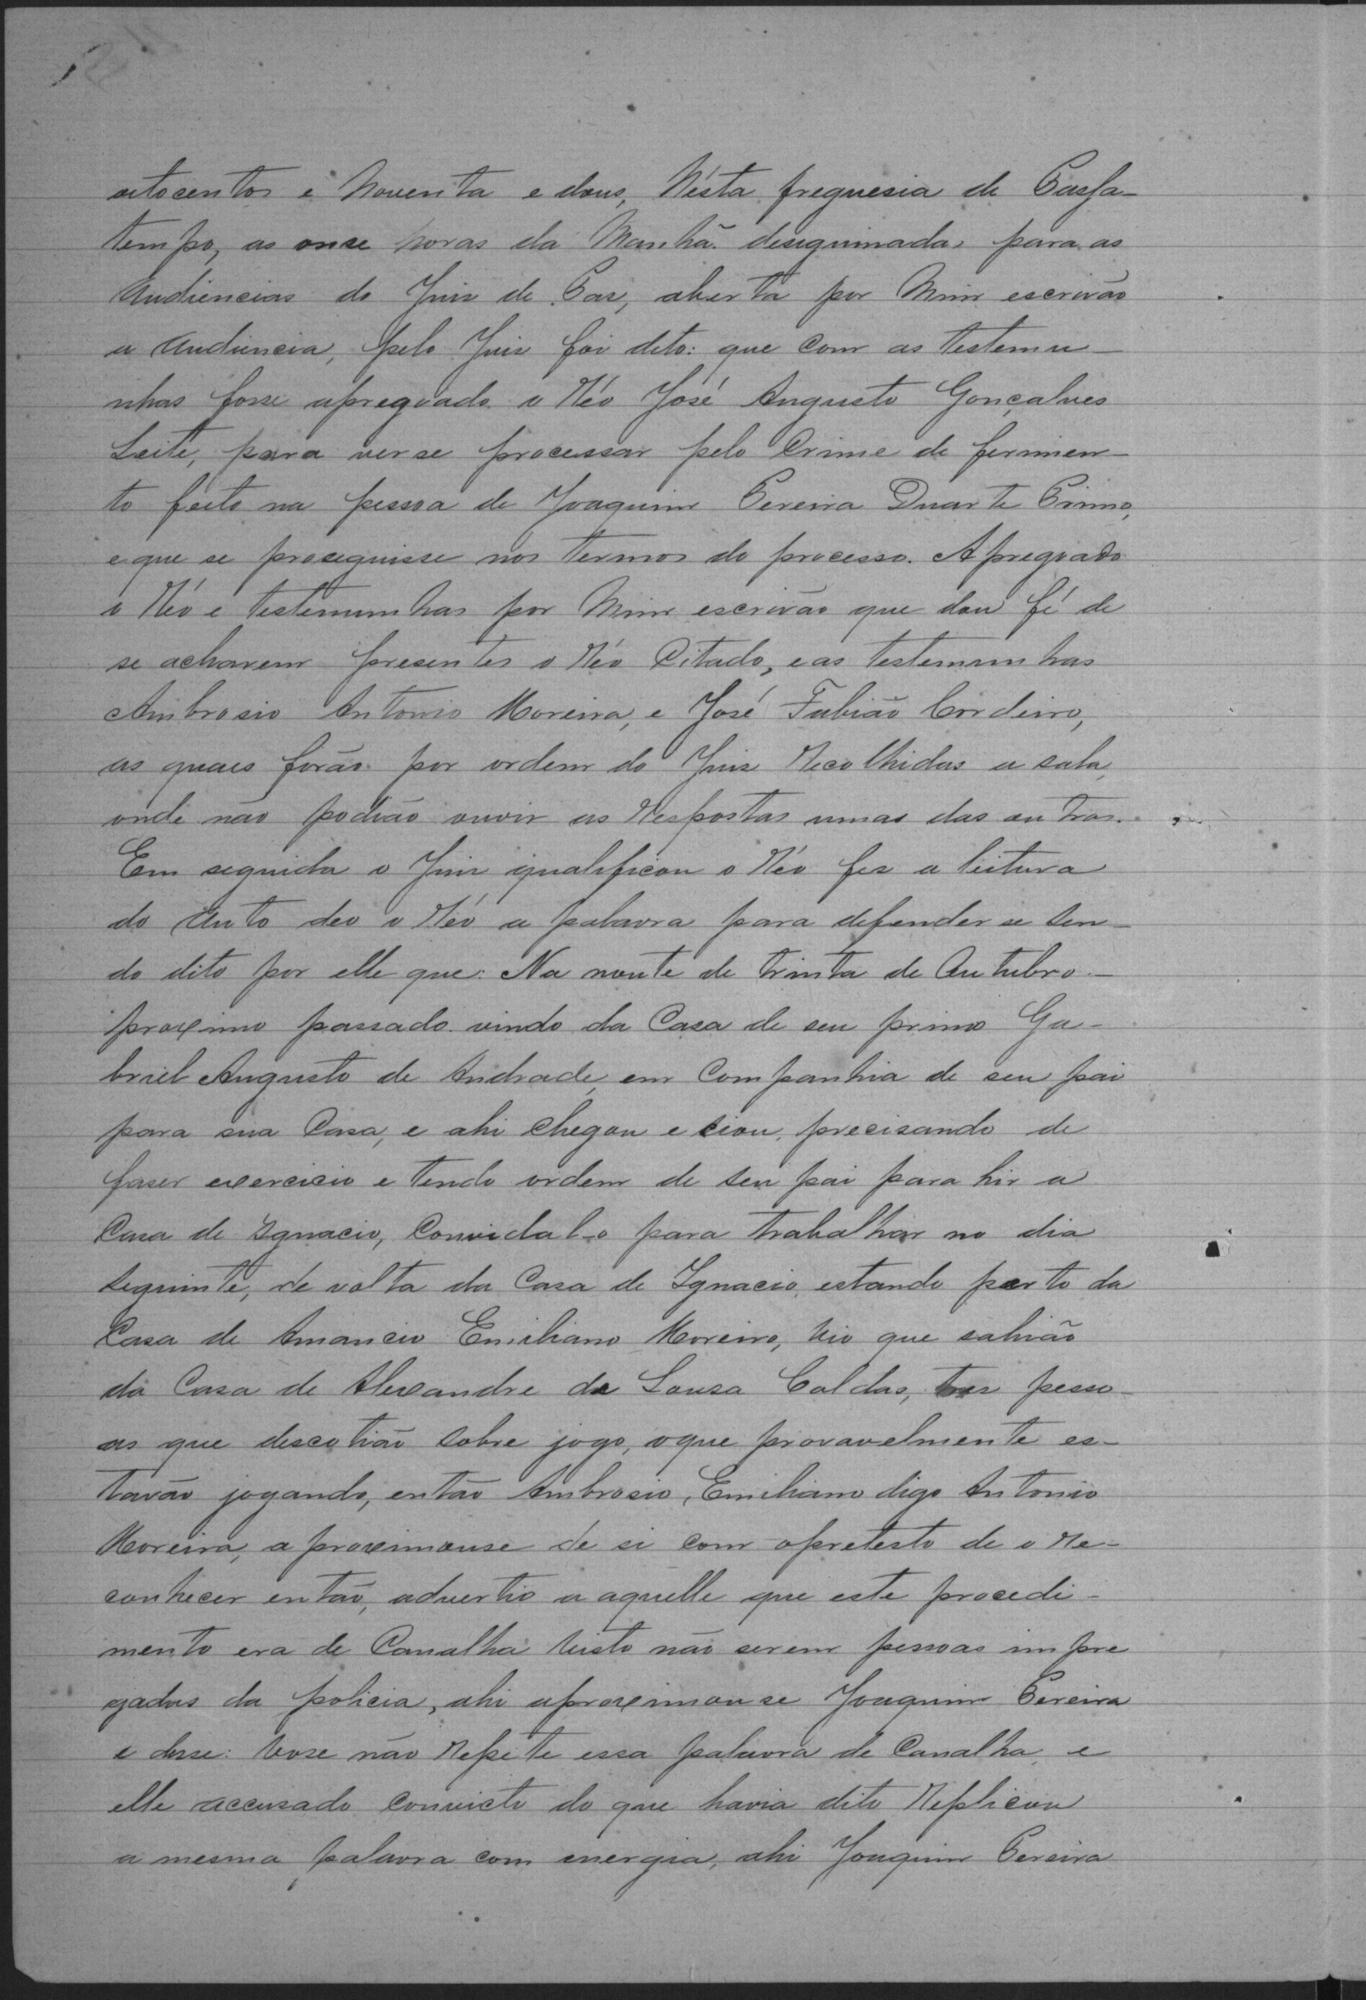 oitocentos e Noventa e dous, Nésta freguesia de Passa-
tempo, as onse horas da Manhã desiguinada para as
Audiencias do Juiz de Pas, aberta por Mim escrivão
a Audiencia, pelo Juiz foi dito: que com as testemu-
nhas fosse apregoado o Réo José Augusto Gonçalves
Leite, para ver se processar pelo Crime de ferimen-
to feito na pessoa de Joaquim Pereira Duarte Primo,
e que se proseguisse nos termos do processo. Apregoado
o Réo e testemunhas por Mim escrivão que dou fé de
se acharem presentes o Réo Citado, e as testemunhas
Ambrosio Antonio Moreira, e José Fabião Cordeiro,
as quaes forão por ordem do Juiz Recolhidas a sala,
onde não podião ouvir as Respostas umas das outras.
Em seguida o Juiz qualificou o Réo fez a leitura
do Auto deo o Réo a palavra para defender se sen-
do dito por elle que: Na noute de trinta de Outubro
proximo passado vindo da Casa de seu primo Ga-
briel Augusto de Andrade, em Companhia de seu pai
para sua Casa, e ahi chegou e ciou, precisando de
faser exercicio e tendo ordem de seu pai para hir a
Casa de Ignacio, Convidal-o para trabalhar no dia
seguinte, de volta da Casa de Ignacio, estando perto da
Casa de Amancio Emiliano Moreira, vio que sahião
da Casa de Alexandre de Sousa Caldas, tres pesso-
as que descotião sobre jogo, oque provavelmente es-
tavão jogando, então Ambrosio, Emiliano digo Antonio
Moreira, aproximouse de si com opretesto de o Re-
conhecer então, advertio a aquelle que este procedi-
mento era de Canalha visto não serem pessoas impre
gadas da policia, ahi aproximou se Joaquim Pereira
e disse: Vose não Repete essa palavra de Canalha, e
elle accusado convicto do que havia dito Replicou
a mesma palavra com energia, ahi Joaquim Pereira